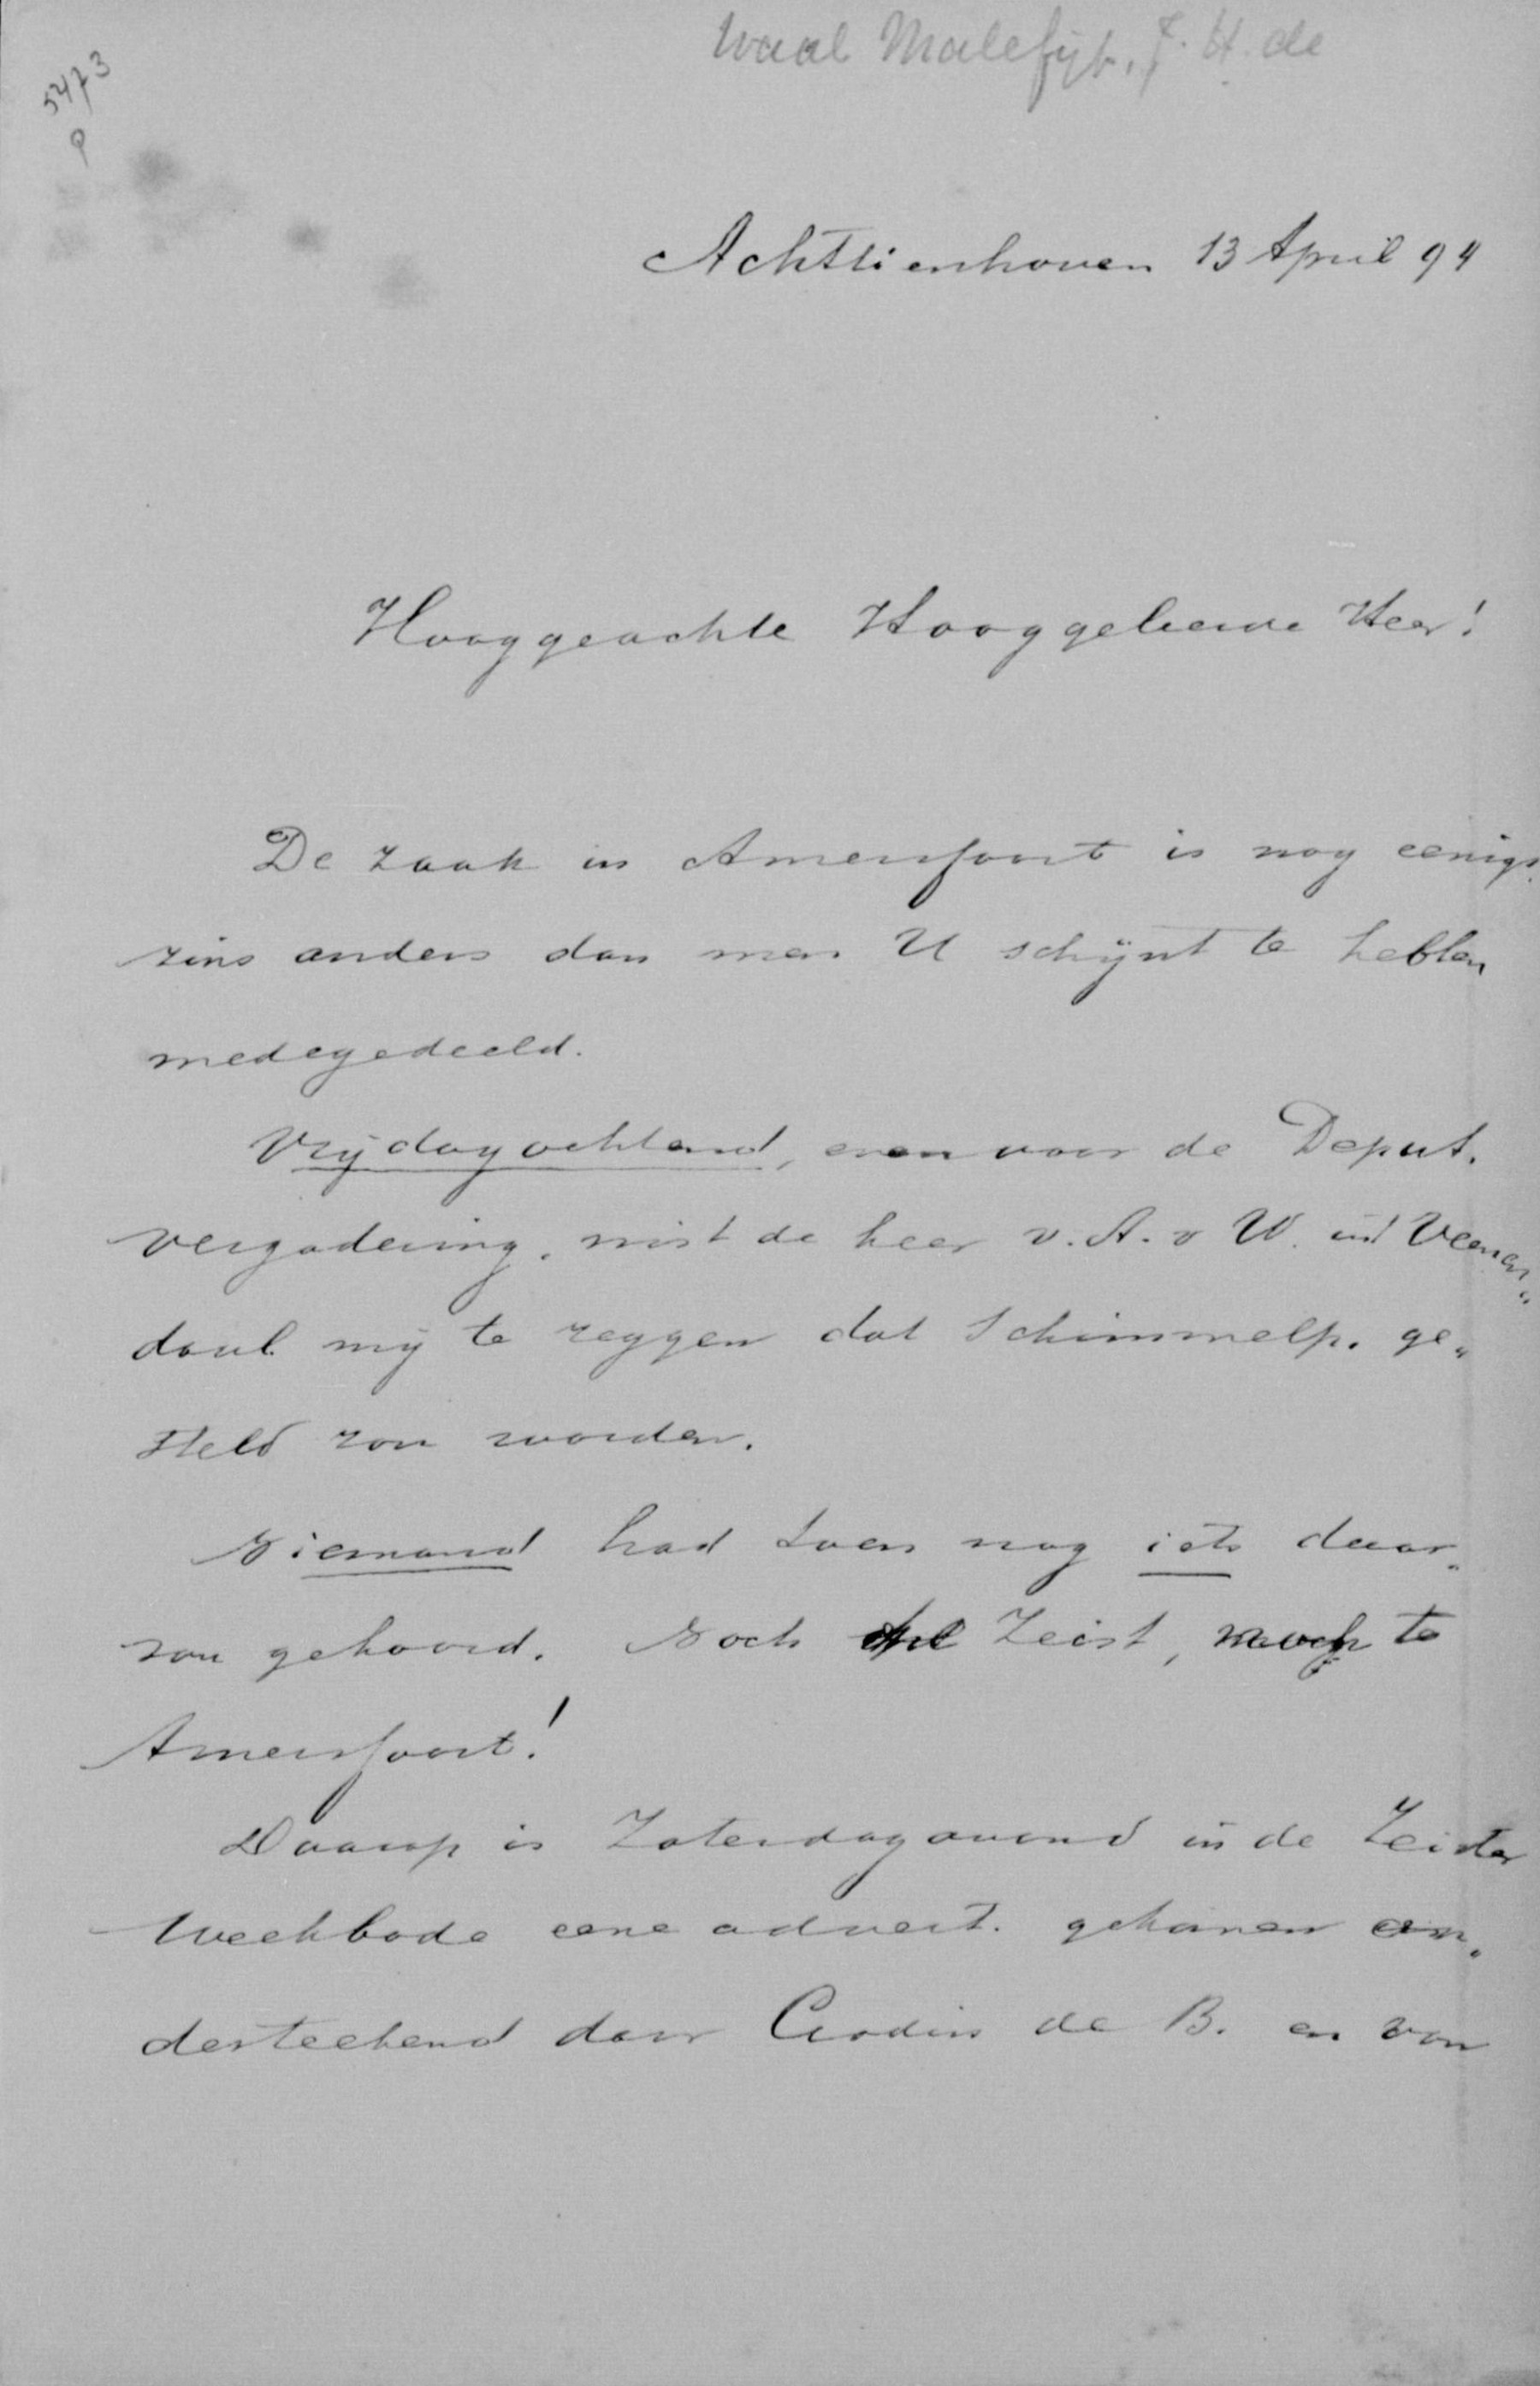 Waal Malefijt, J. H. de
5473
Achttienhoven 13 April 94
Hooggeachte Hooggeleerde Heer!
De zaak in Amersfoort is nog eenigs„
zins anders dan men U schijnt te hebben
medegedeeld.
Vrijdagochtend, even voor de Deput.
vergadering, wist de heer v. A. v W. uit Veenen„
daal mij te zeggen dat Schimmelp. ge„
steld zou worden.
Niemand had toen nog iets daar„
van gehoord. Noch Zeist, noch te
Amersfoort!
Daarop is Zaterdagavond in de Zeister
Weekbode eene advert. gekomen on„
derteekend door Godin de B. en van